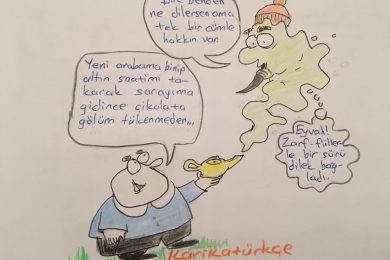 Dile benden
ne dilersen ama
tek bir cümle
hakkın var.
Yeni arabama binip
altın saatimi ta-
karak sarayıma
gidince çikolata
gölüm tükenmeden...
Eyvah!
Zarf-fiiller-
le bir sürü
dilek bağ-
ladı.
Karikatürkçe